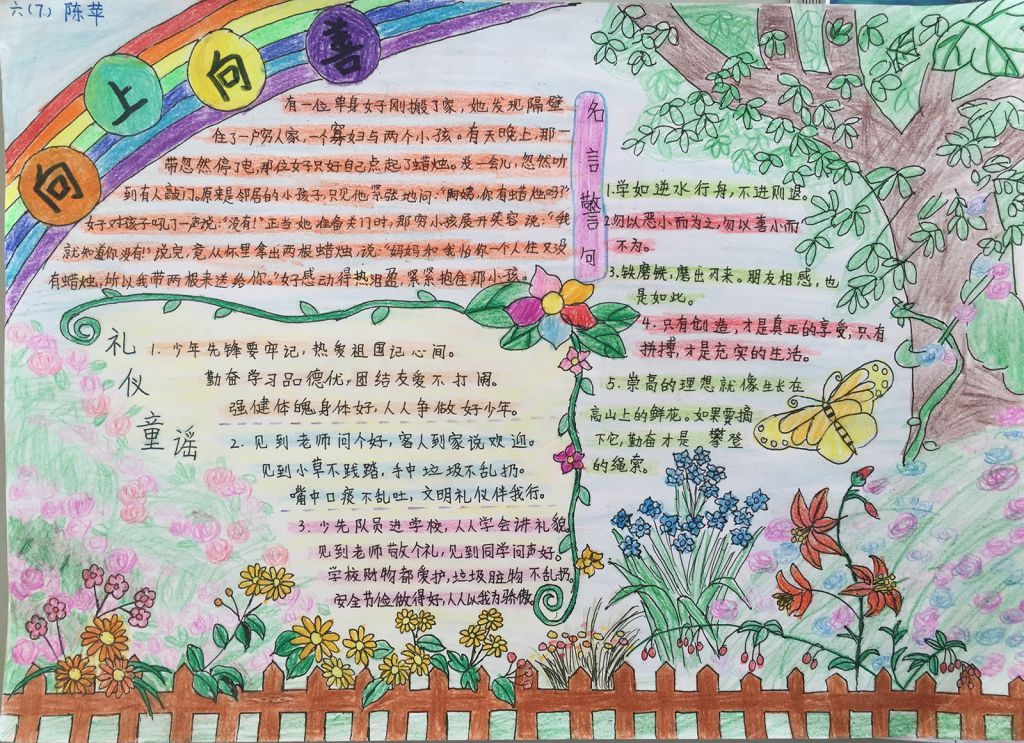 六(7) 陈苹
向上向善
有一位单身女子刚搬了家,她发现隔壁
住了一户穷人家,一个寡妇与两个小孩。有天晚上,那一
带忽然停了电,那位女子只好自己点起了蜡烛。没一会儿,忽然听
到有人敲门。原来是邻居的小孩子,只见他紧张地问:“阿姨,你有蜡烛吗?”
女子对孩子吼了一声说:“没有!”正当她准备关门时,那穷小孩展开笑容说:“我
就知道你没有!”说完,竟从怀里拿出两根蜡烛,说:“妈妈和我怕你一个人住又没
有蜡烛,所以我带两根来送给你。”女子感动得热泪盈,紧紧抱住那小孩。
名言警句
1.学如逆水行舟,不进则退。
2.勿以恶小而为之,勿以善小而
不为。
3.铁磨铁,磨出刃来。朋友相感,也
是如此。
4.只有创造,才是真正的享受,只有
拼搏,才是充实的生活。
5.崇高的理想就像生长在
高山上的鲜花。如果要摘
下它,勤奋才是 攀登
的绳索。
礼仪童谣
1.少年先锋要牢记,热爱祖国记心间。
勤奋学习品德优,团结友爱不打闹。
强健体魄身体好,人人争做好少年。
2.见到老师问个好,客人到家说欢迎。
见到小草不践踏,手中垃圾不乱扔。
嘴中口痰不乱吐,文明礼仪伴我行。
3.少先队员进学校,人人学会讲礼貌
见到老师敬个礼,见到同学问声好。
学校财物都爱护,垃圾脏物不乱扔。
安全节俭做得好,人人以我为骄傲